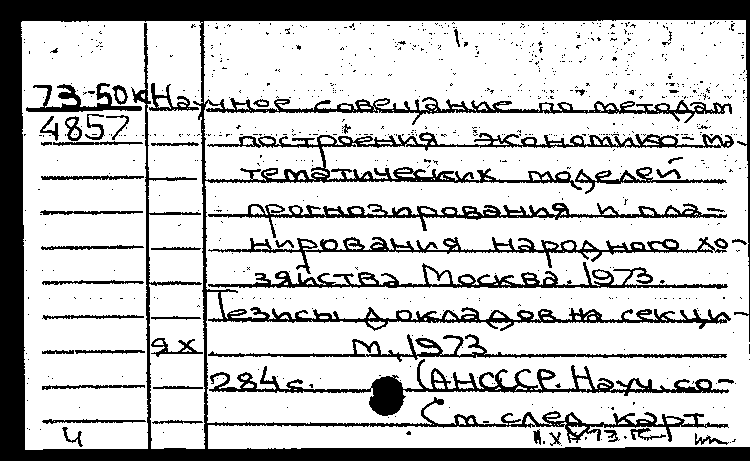 1.
73-50к Научное совещание по методам
4857 построения экономико-ма-
тематических моделей
прогнозирования и пла-
нирования народного хо-
зяйства Москва. 1973.
Тезисы докладов на секци-
ях М., 1973.
284 с. (АН СССР. Науч. со-
См. след. карт.
4